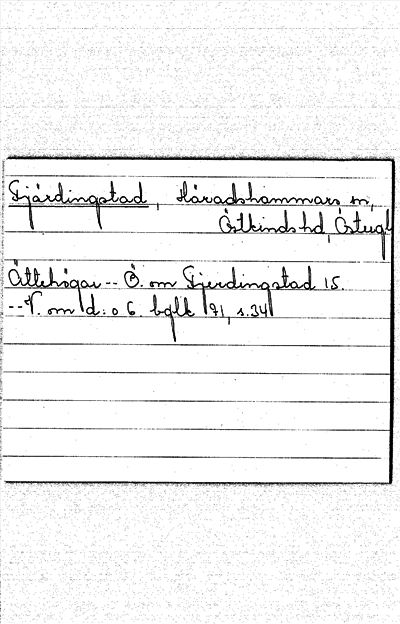 Fjärdingstad, Häradshammars sn,
Östkinds hd, Östergl
Ättehögar -- Ö. om Fjerdingstad 15.
-- V. om d:o 6. bglk 71, s.34